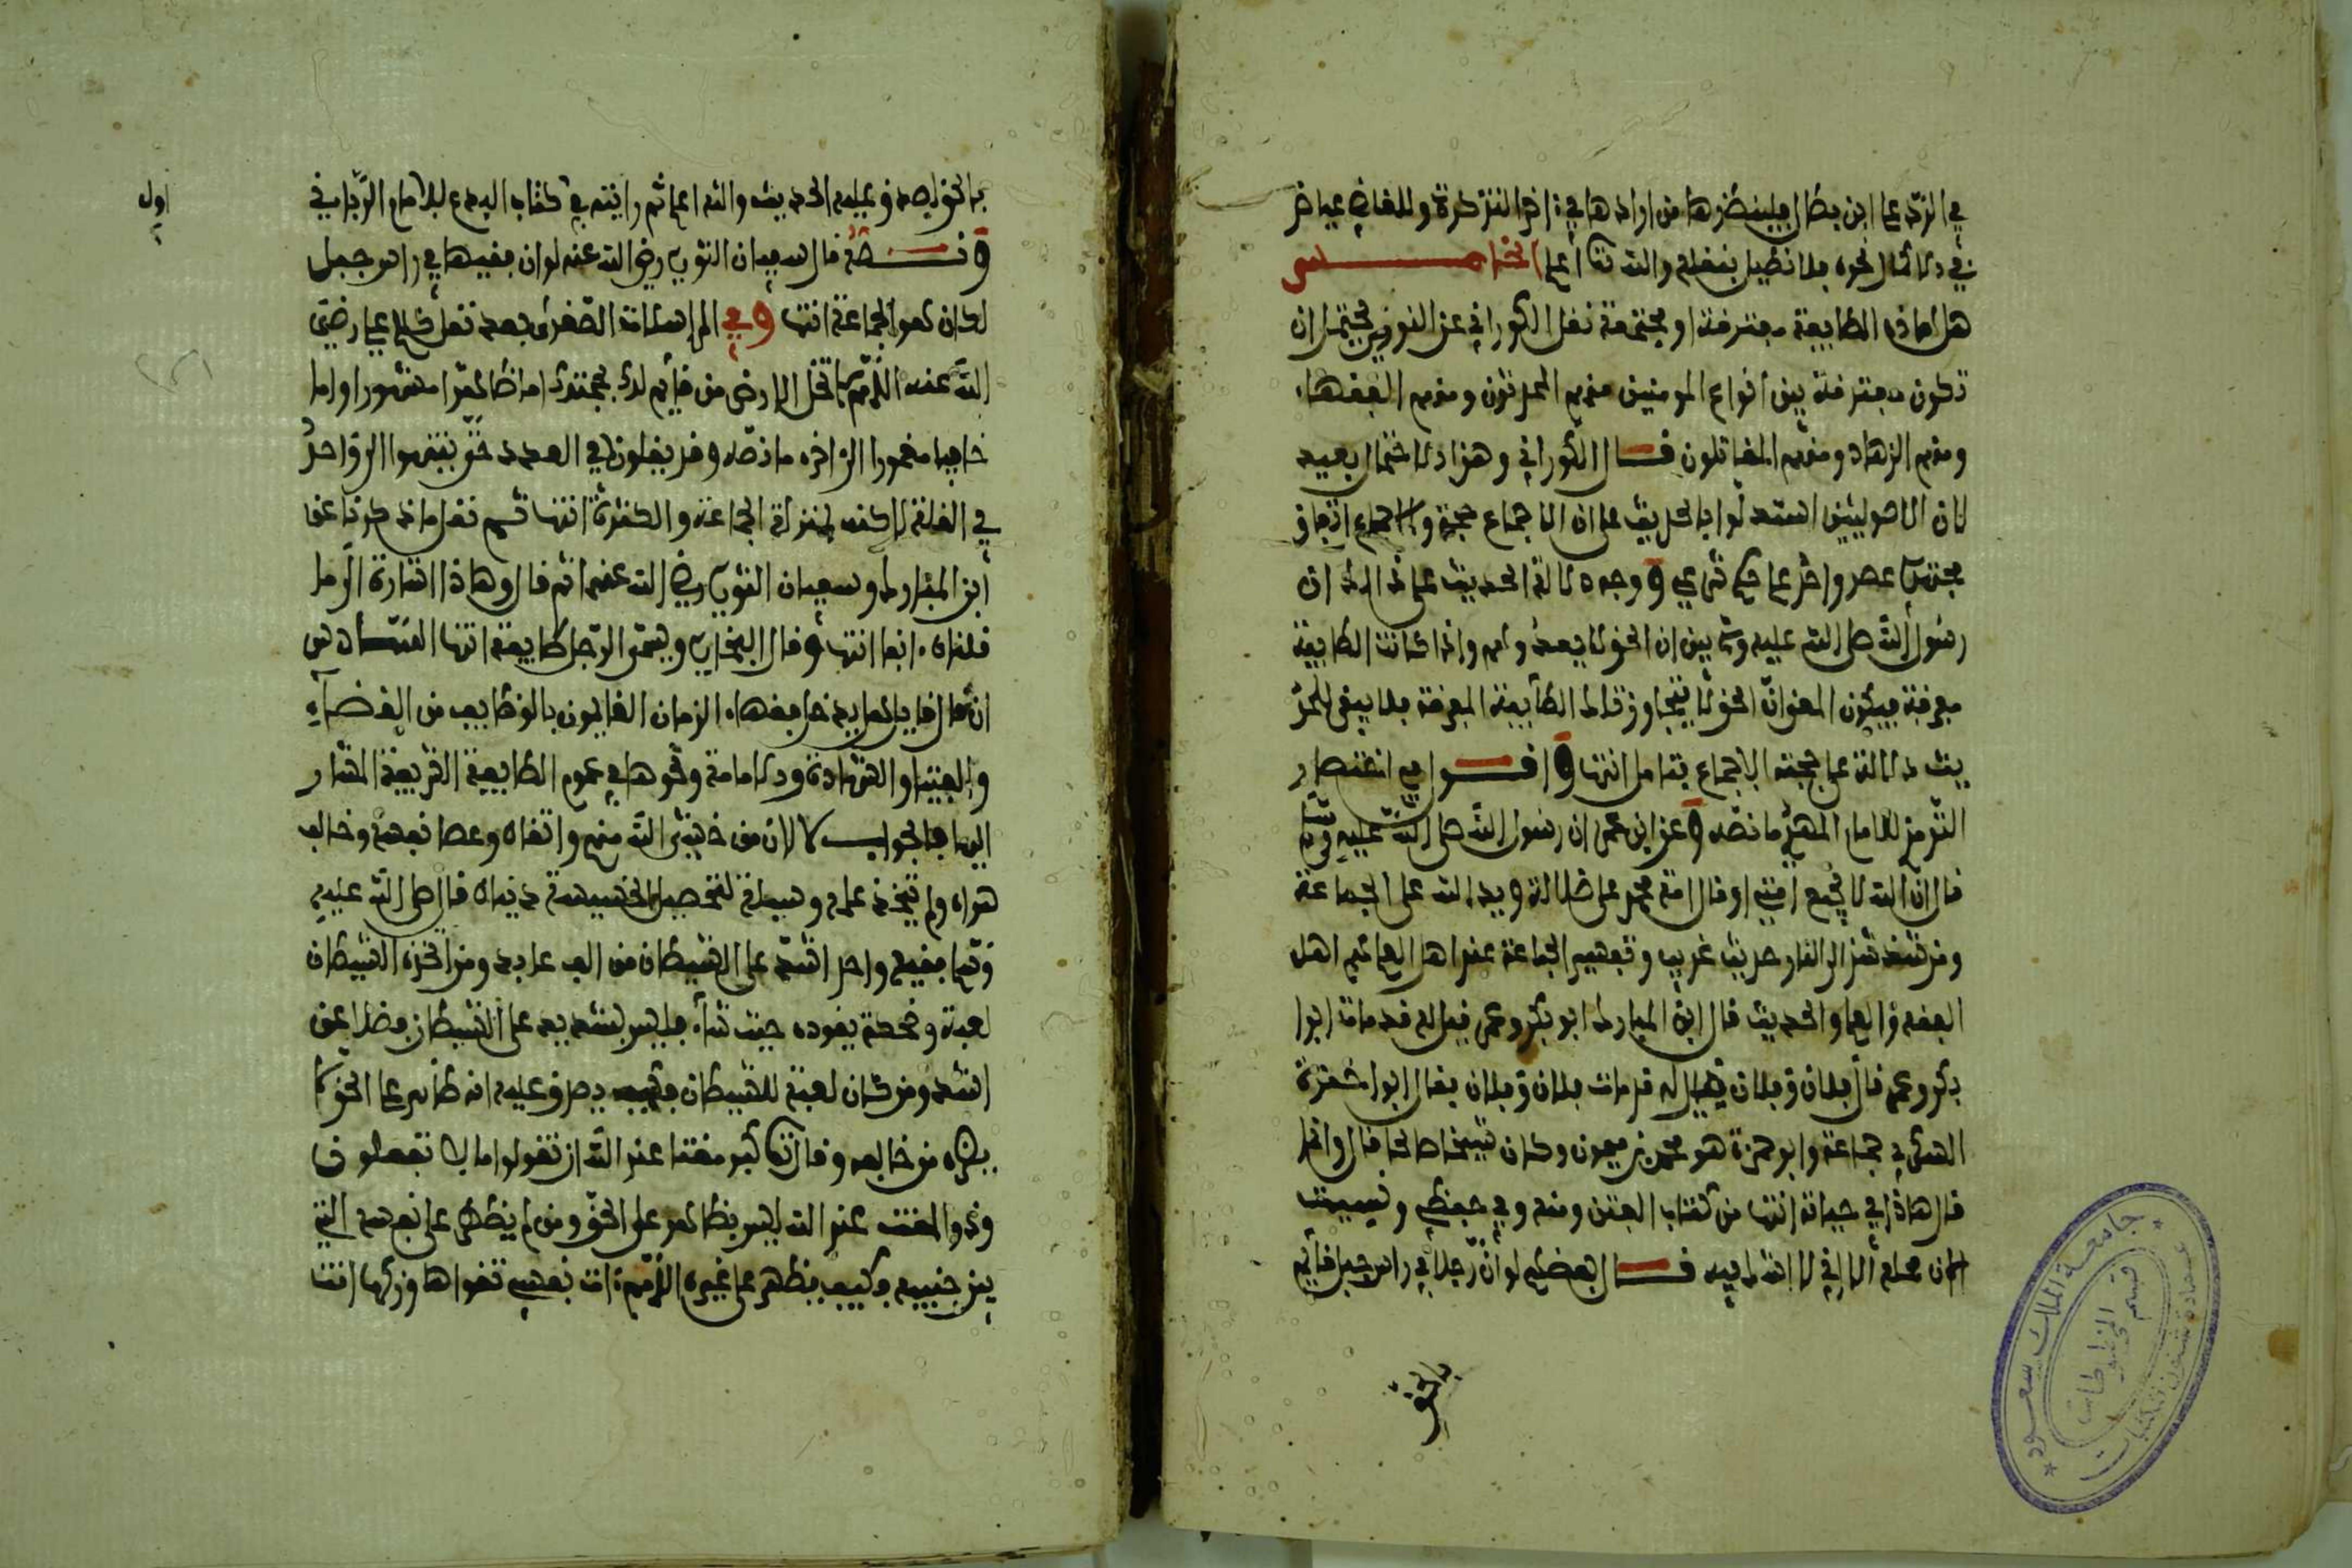 في الرد على ابن بطال فلينظرها من ارادها في اخر التذكرة وللقاضي عياض
في ذلك نحوه فلا نطيل بنقله والله تعا اعلم الخامس
هل هاذه الطايفة مفترقة او مجتمعة نقل الكوراني عن النووي يحتمل ان
تكون مفترقة بين انواع المومنين منهم المحدثون ومنهم الفقهاء
ومنهم الزهاد ومنهم المقاتلون قال الكوراني وهذا الاحتمال بعيد
لان الاصوليين استدلوا بالحديث على ان الاجماع حجة والاجماع اتفاق
مجتهدي عصر واحد على حكم شرعي ووجه دلالة الحديث على ذالك ان
رسول الله صلى الله عليه وسلم بين ان الحق لا يعدوهم واذا كانت الطايفة
مفرقة فيكون المعنى ان الحق لا يتجاوز تلك الطايفة المفرقة فلا يبقى للحد
يث دلالة على حجية الاجماع تامل انتها واقول وفي اختصار
الترمذي للامام ما نصه وعن ابن عمر ان رسول الله صلى الله عليه وسلم
قال ان الله لا يجمع امتي او قال امة محمد على ضلالة ويد الله على الجماعة
ومن شذ شذ الى النار حديث غريب وتفسير الجماعة عند اهل العلم هم اهل
الفقه والعلم والحديث قال ابن المبارك ابو بكر وعمر قيل له قد مات ابوا
بكر وعمر قال فلان وفلان قيل له قد مات فلان وفلان فقال ابوا حمزة
السكري جماعة وابو حمزة هو محمد بن ميمون وكان شيخا صالحا قال وانما
قال هاذا في حياته انتها من كتاب الفتن ومنه وفي حفظي ونسيت
الان محله الا اني لا اشك فيه قال بعضهم لو ان رجلا في راس جبل قايم
بالحق
بالحق لصدق عليه الحديث والله اعلم ثم رايته في كتاب البدع للامام
ونصه قال سفيان الثوري رضي الله عنه لو ان فقيها في راس جبل
لكان هو الجماعة انتها وفي المراسلات الصغرى بعد نقل كلام علي رضي
الله عنه اللهم لا تخل الارض من قايم لك بحجتك اما ظاهرا مشهورا واما
خافيا مغمورا الى اخره ما نصه وقد يقلون في العدد حتى ينتهوا الى واحد
في القلة لاكنه بمنزلة الجماعة والكثرة انتها ثم نقل ما ذكرنا عن
ابن المبارك وسفيان الثوري رضي الله عنهما ثم قال وهاذا اشارة الى ما
قلناه انفا انتها وقال البخاري ويسمى الرجل طايفة انتها السادس
ان قال قايل هل يدخل فقهاء الزمان القايمون بالوظايف من القضاء
والفتيا والشهادة والامامة ونحوها في عموم الطايفة الشريفة المشار
اليها فالجواب كلا لان من خشي الله منهم واتقاه وعصا نفسه وخالف
هواه ولم يتخذ علمه وسيلة لتحصيل الخسيسة دنياه قال صلى الله عليه
وسلم فقيه واحد اشد على الشيطان من الف عابد ومن اتخذه الشيطان
لعبة وضحكة يقوده حيث شاء فليس بشديد على الشيطان فضلا عن
اشد ومن كان لعبة للشيطان فكيف يصدق عليه انه ظاهر على الحق لا
يضره من خالفه وقال تعا كبر مقتا عند الله ان تقولوا ما لا تفعلون
وذو المقت عند الله ليس بظاهر على الحق ومن لم يظهر على نفسه التي
بين جنبيه فكيف يظهر على غيره اللهم ات نفسي تقواها وزكها انت
اول